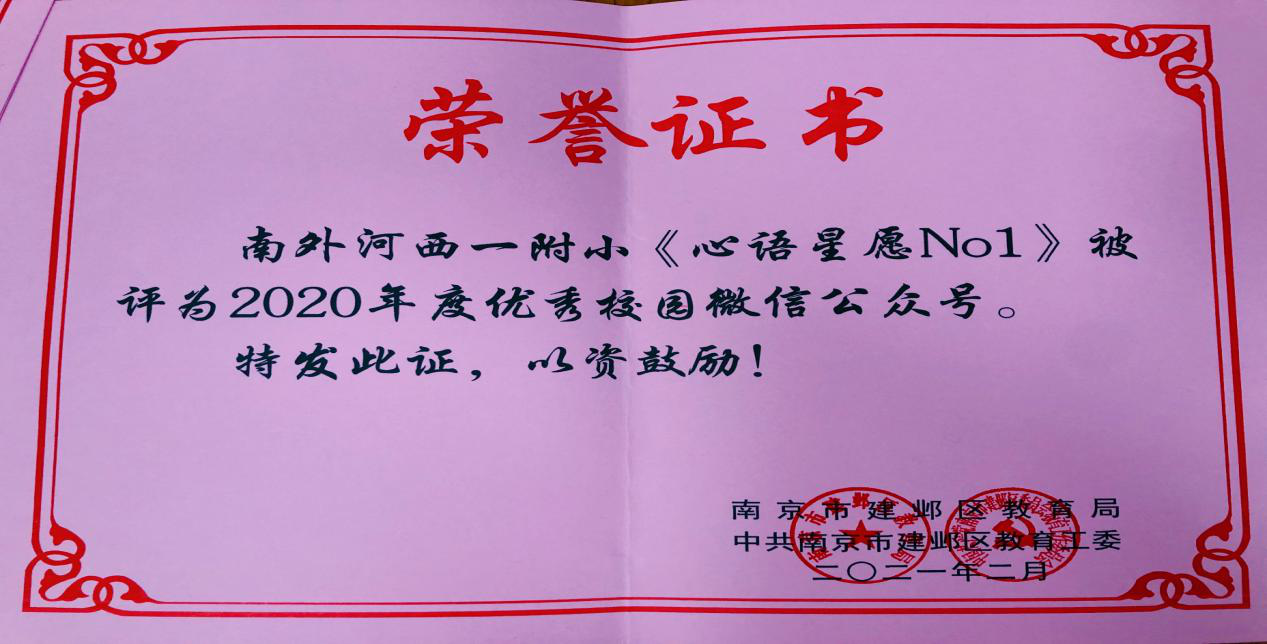 荣誉证书
南外河西一附小《心语星愿No1》被
评为2020年度优秀校园微信公众号。
特发此证，以资鼓励！
南京市建邺区教育局
中共南京市建邺区教育工委
二〇二一年二月